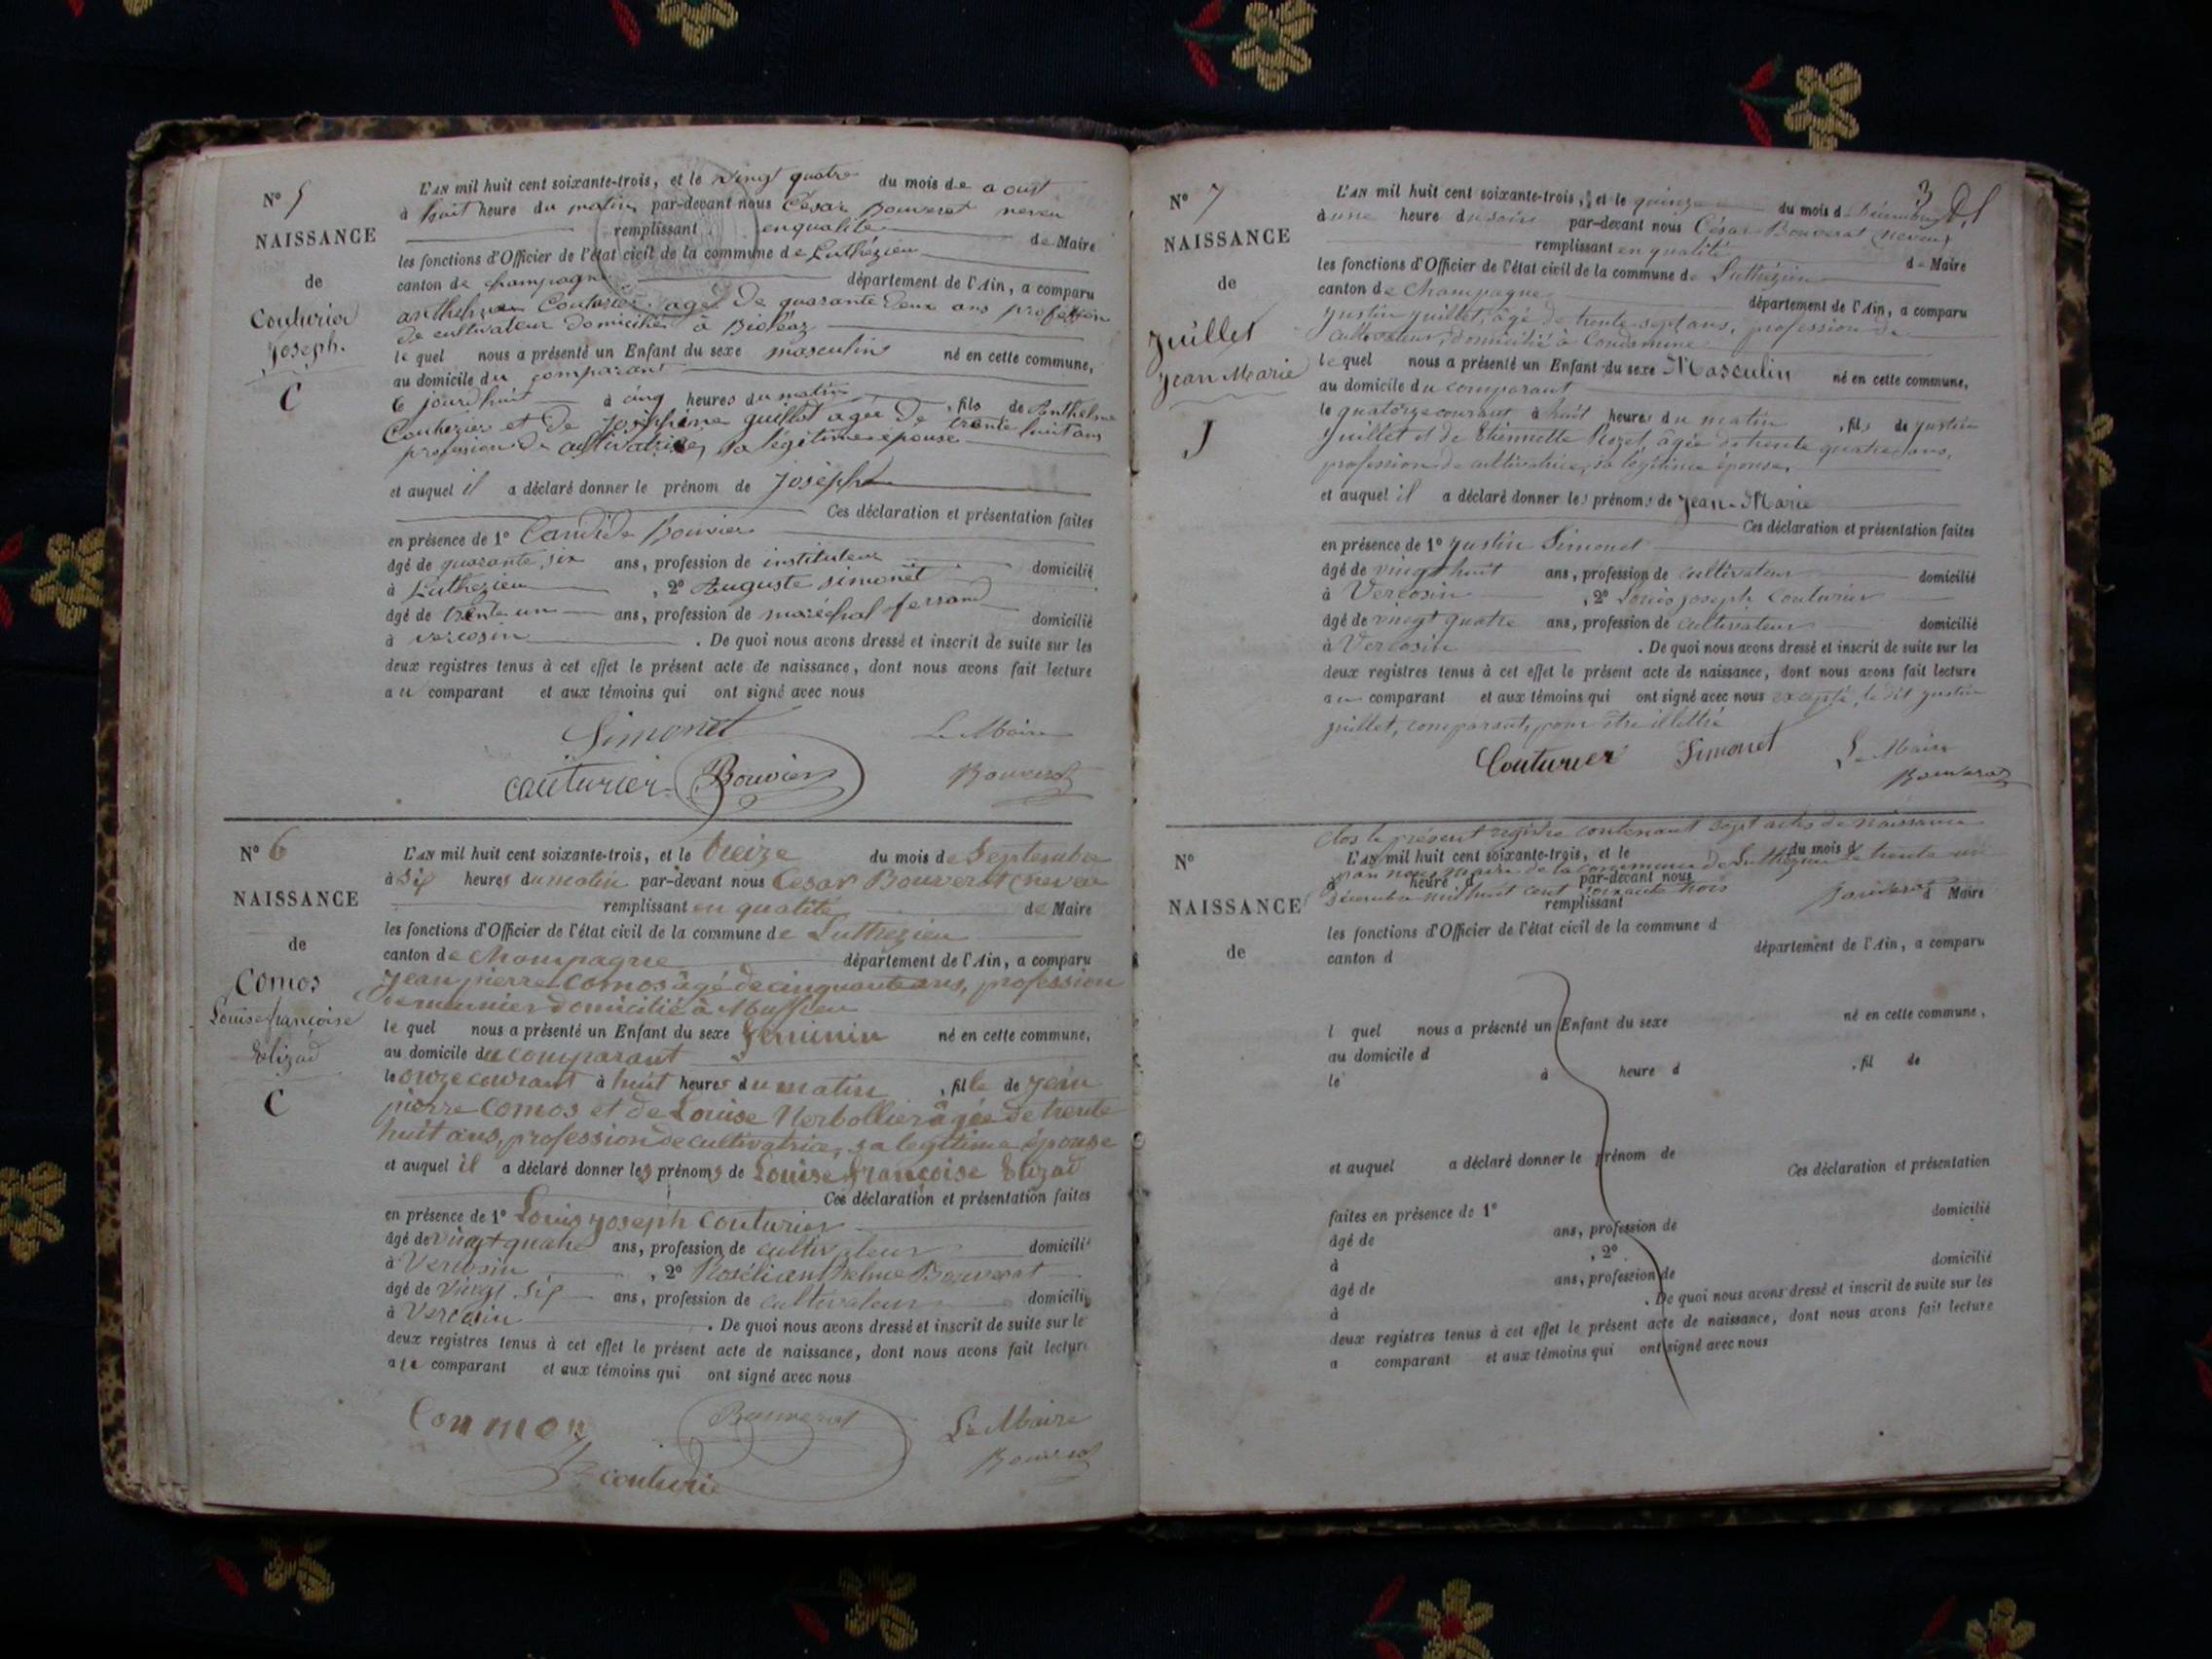 N° 5
NAISSANCE
de
Couturier
Joseph.
C
L'AN mil huit cent soixante-trois, et le vingt quatre du mois de aoust
à huit heure du matin par-devant nous César Bouverat neveu
remplissant en qualité de Maire
les fonctions d'Officier de l'état civil de la commune de Luthézieu
canton de champagne département de l'Ain, a comparu
anthelme Couturier agé de quarante deux ans profession
de cultivateur domicilié à Bioléaz
le quel nous a présenté un Enfant du sexe masculin né en cette commune,
au domicile du comparant
le jourdhuit à cinq heures du matin, fils de Anthelme
Couturier et de Joséphine guillot agée de trente huit ans
profession de cultivatrice, sa légitime épouse
et auquel il a déclaré donner le prénom de Joseph
Ces déclaration et présentation faites
en présence de 1° Candide Bouvier
âgé de quarante six ans, profession de instituteur domicilié
à Luthezieu, 2° Auguste simonet
âgé de trente un ans, profession de maréchal ferrand domicilié
à vercosin. De quoi nous avons dressé et inscrit de suite sur les
deux registres tenus à cet effet le présent acte de naissance, dont nous avons fait lecture
au comparant et aux témoins qui ont signé avec nous
Simonet Le Maire
couturier Bouvier Bouverat
N° 6
NAISSANCE
de
Comos
Louise françoise
Elizad
C
L'AN mil huit cent soixante-trois, et le treize du mois de Septembre
à six heures du matin par-devant nous César Bouverat (neveu
remplissant en qualité de Maire
les fonctions d'Officier de l'état civil de la commune de Luthezieu
canton de Champagne département de l'Ain, a comparu
Jean pierre Comos âgé de cinquante ans, profession
de meunier domicilié à Mussieu
le quel nous a présenté un Enfant du sexe féminin né en cette commune,
au domicile du comparant
le onze courant à huit heures du matin, fille de Jean
pierre Comos et de Louise Verbollier âgée de trente
huit ans, profession de cultivatrice, sa légitime épouse
et auquel il a déclaré donner les prénoms de Louise françoise Elizad
Ces déclaration et présentation faites
en présence de 1° Louis joseph Couturier
âgé de vingt quatre ans, profession de cultivateur domicilié
à Vercosin, 2° Anthelme Bouverat
âgé de vingt six ans, profession de cultivateur domicilié
à Vercosin. De quoi nous avons dressé et inscrit de suite sur le
deux registres tenus à cet effet le présent acte de naissance, dont nous avons fait lecture
au comparant et aux témoins qui ont signé avec nous
Bouverat Le Maire
couturier Bouverat
3
N° 7
NAISSANCE
de
Juillet
Jean Marie
J
L'AN mil huit cent soixante-trois, et le quinze du mois d Décembre
à une heure du soir par-devant nous César Bouverat (neveu)
remplissant en qualité de Maire
les fonctions d'Officier de l'état civil de la commune de Luthézieu
canton de Champagne département de l'Ain, a comparu
Justin Juillet, âgé de trente sept ans, profession de
cultivateur, domicilié à Condamine
le quel nous a présenté un Enfant du sexe Masculin né en cette commune,
au domicile du comparant
le quatorze courant à huit heures du matin, fils de Justin
Juillet et de Etiennette Rozet, âgée de trente quatre ans,
profession de cultivatrice, sa légitime épouse,
et auquel il a déclaré donner les prénoms de Jean-Marie
Ces déclaration et présentation faites
en présence de 1° Justin Simonet
âgé de vingt huit ans, profession de cultivateur domicilié
à Vercosin, 2° Louis joseph Couturier
âgé de vingt quatre ans, profession de cultivateur domicilié
à Vercosin. De quoi nous avons dressé et inscrit de suite sur les
deux registres tenus à cet effet le présent acte de naissance, dont nous avons fait lecture
au comparant et aux témoins qui ont signé avec nous excepté, le dit Justin
Juillet, comparant, pour être illettré
Couturier Simonet Le Maire
Bouverat
Clos le présent registre contenant sept actes de naissance
par nous maire de la commune de Luthézieu Le trente un
Décembre mil huit cent soixante trois Bouverat
N°
NAISSANCE
de
L'AN mil huit cent soixante-trois, et le du mois d
à heure d par-devant nous
remplissant d Maire
les fonctions d'Officier de l'état civil de la commune d
canton d département de l'Ain, a comparu
l quel nous a présenté un Enfant du sexe né en cette commune,
au domicile d
le à heure d, fil de
et auquel a déclaré donner le prénom de
Ces déclaration et présentation
faites en présence de 1°
âgé de ans, profession de domicilié
à, 2°
âgé de ans, profession de domicilié
à. De quoi nous avons dressé et inscrit de suite sur les
deux registres tenus à cet effet le présent acte de naissance, dont nous avons fait lecture
a comparant et aux témoins qui ont signé avec nous